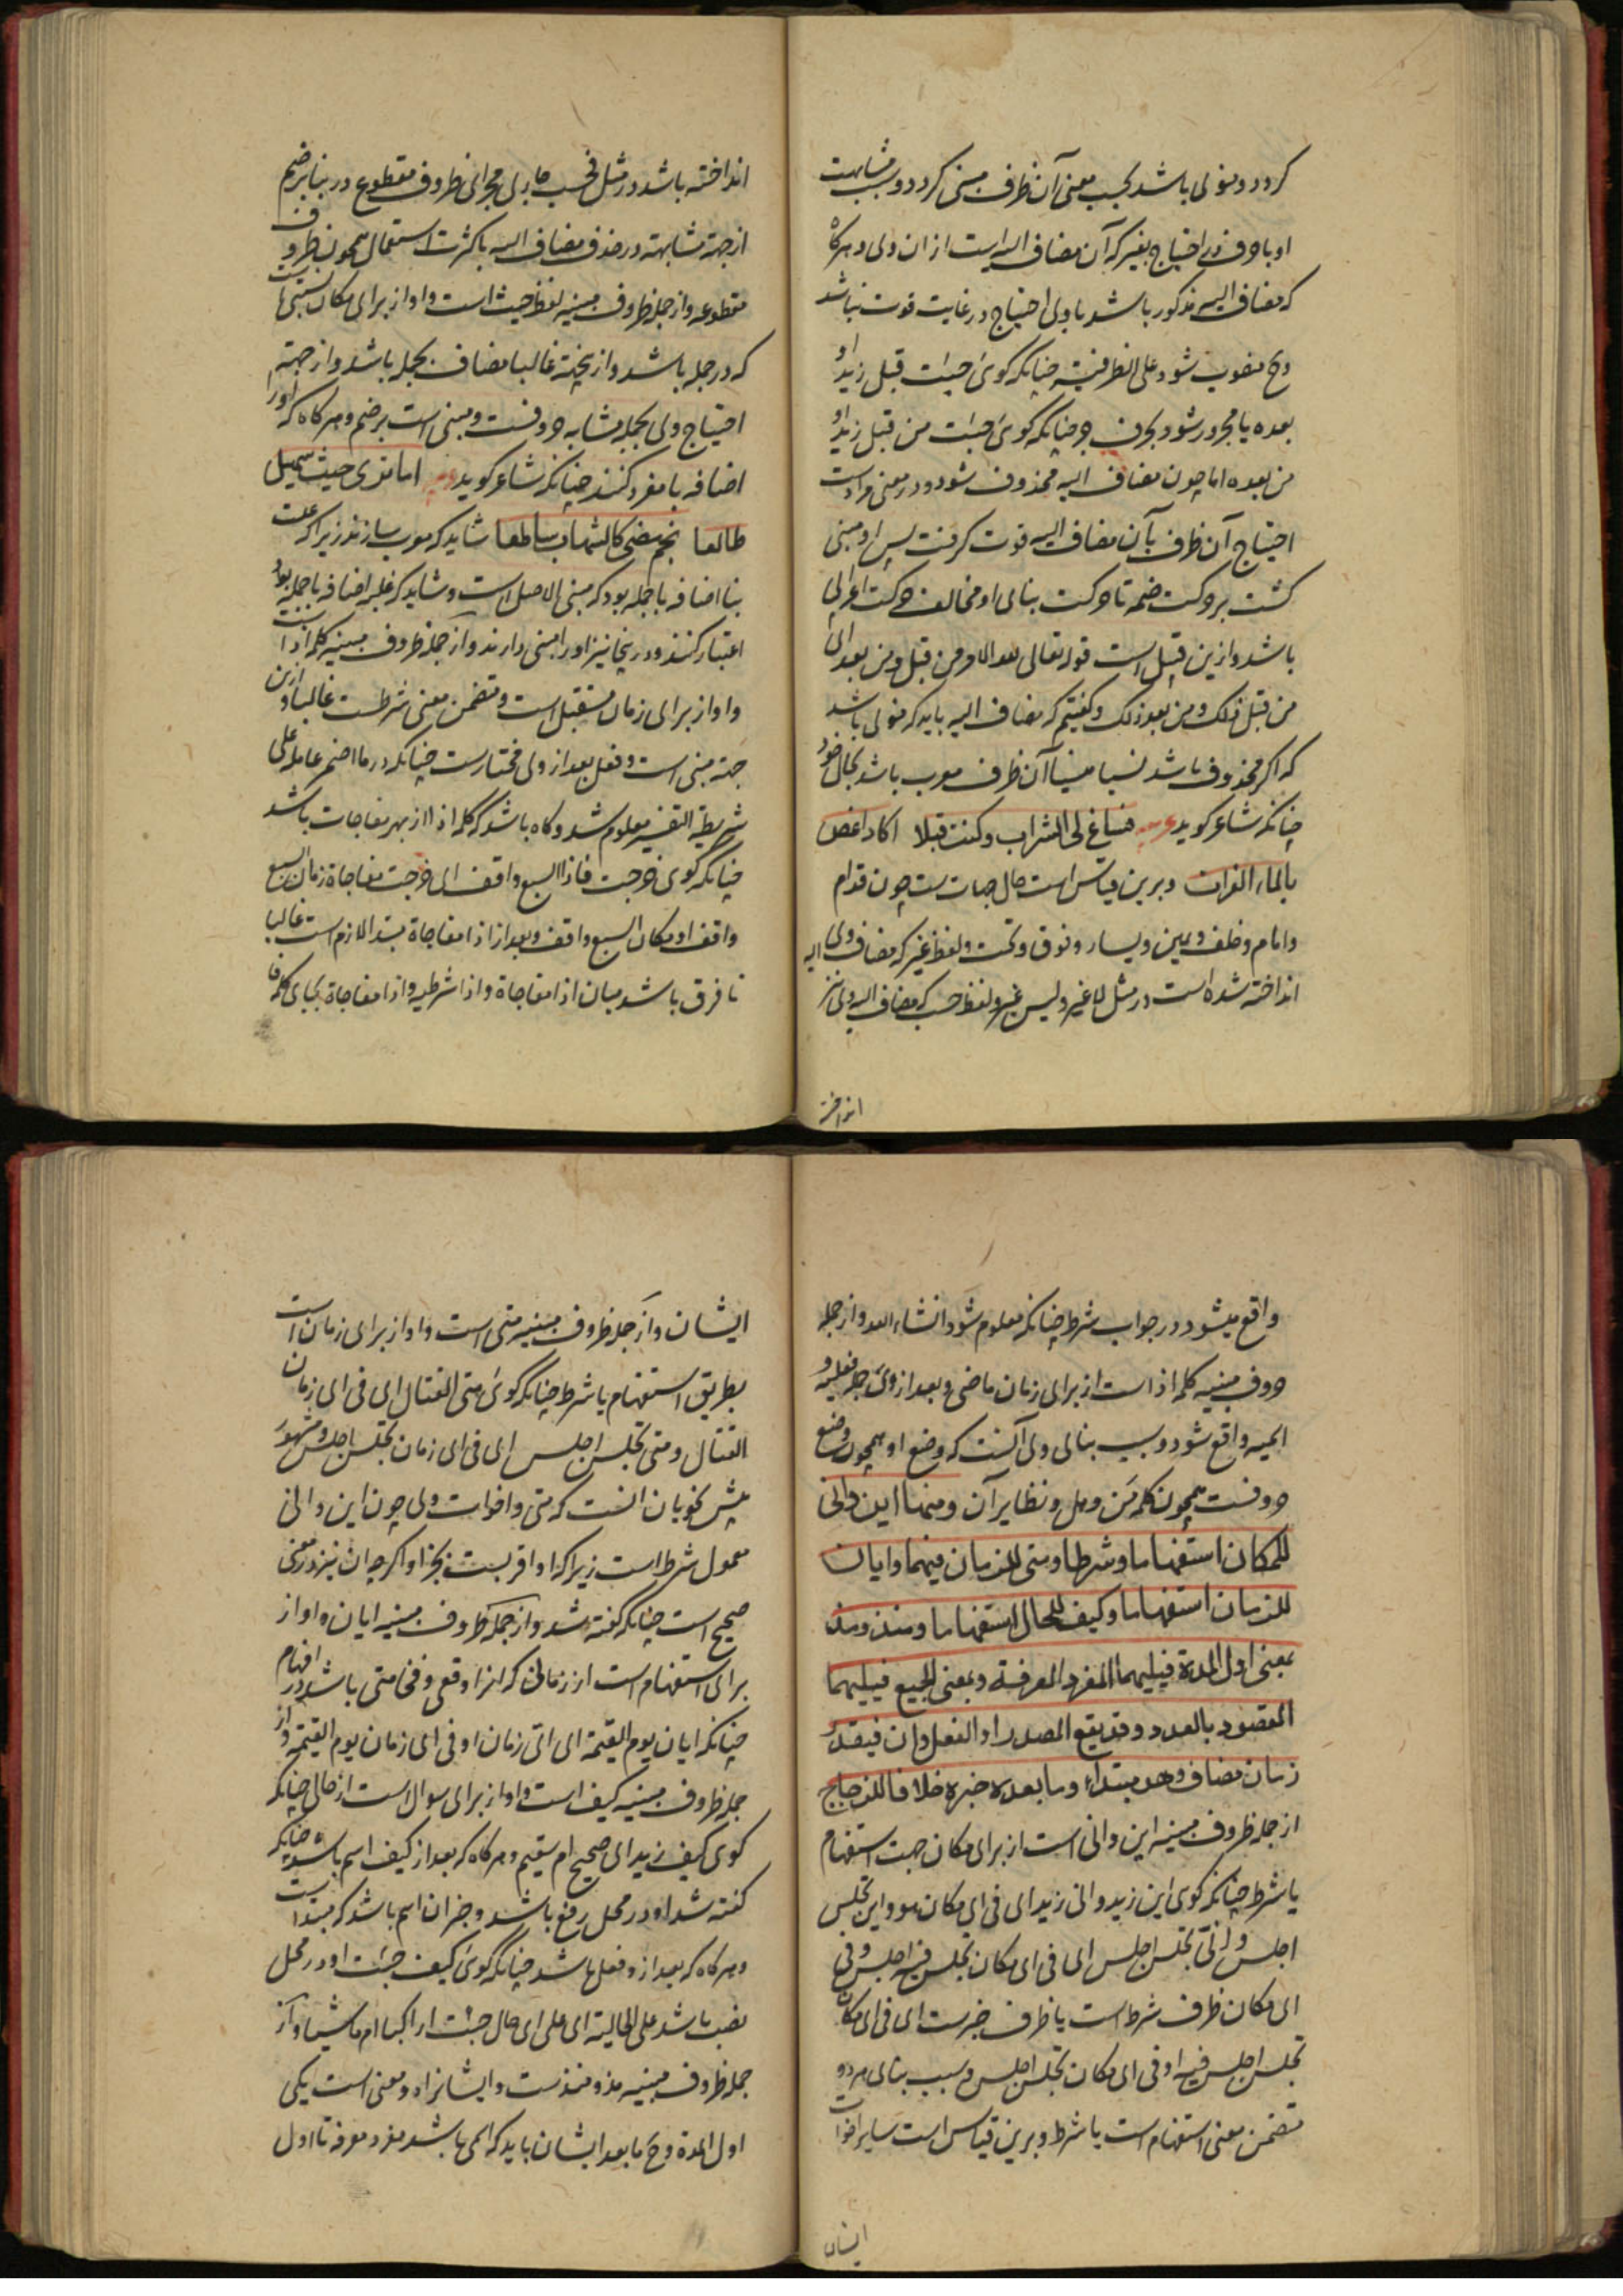 کردد و منوی باشد بحسب معنی آن ظرف مبنی کردد و بسبب مشابهت
او با حرف در احتیاج بغیر که آن مضاف الیه است از ان وی و هرکاه
که مضاف الیه مذکور باشد با وی احتیاج در غایت قوت نباشد
وح منصوب شود علی الظرفیة چنانکه کوی جئت قبل زید او
بعده یا مجرور شود بحرف جر چنانکه کوی جئت من قبل زید او
من بعده اما چون مضاف الیه محذوف شود و در معنی مرادست
احتیاج آن ظرف بآن مضاف الیه قوت کرفت پس او مبنی
کشت بر حرکت ضمه تا حرکت بنائی او مخالف حرکت اعرابی
باشد و ازین قبیل است قوله تعالی لله الامر من قبل ومن بعد ای
من قبل ذلک ومن بعد ذلک و کفتیم که مضاف الیه باید که منوی باشد
که اکر محذوف باشد نسیا منسیا آن ظرف معرب باشد بحال خود
چنانکه شاعر کوید فساغ لی الشراب وکنت قبلا اکاد اغص
بالماء الفرات و برین قیاس است حال جهات ست چون قدام
وامام وخلف ویمین ویسار وفوق وتحت ولفظ غیر که مضاف الیه وی
انداخته شده است در مثل لاغیر ولیس غیر ولفظ حسب که مضاف الیه وی نیز
انداخته
انداخته باشد در مثل فحسب جاری مجرای ظروف مقطوع در بنا بر ضم
از جهة مشابهة در حذف مضاف الیه با کثرت استعمال همچون ظروف
مقطوعه و از جمله ظروف مبنیه لفظ حیث است و او از برای مکان نسبتی است
که در جمله باشد و ازینجهة غالبا مضاف بجمله باشد و از جهة
احتیاج وی بجمله مشابه حروفست و مبنی است بر ضم و هرکاه که او را
اضافه با مفرد کنند چنانکه شاعر کوید اما تری حیث سهیل
طالعا نجم یضی کالشهاب ساطعا شاید که معرب سازند زیرا که علت
بنا اضافه با جمله بود که مبنی الاصل است و شاید که غلبه اضافه با جمله بود
اعتبار کنند و درینجا نیز او را مبنی دارند و از جمله ظروف مبنیه کلمه اذا است
و او از برای زمان مستقبل است و متضمن معنی شرطست غالبا و ازین
جهة مبنی است و فعل بعد از وی مختارست چنانکه در ما اضمر عامله علی
شریطة التفسیر معلوم شد و کاه باشد که کلمه اذا از بهر مفاجات باشد
چنانکه کوی خرجت فاذا السبع واقف ای خرجت مفاجاة زمان السبع
واقف او مکان السبع واقف و بعد از اذا مفاجاة مبتدا لازم است غالبا
تا فرق باشد میان اذا مفاجاة و اذا شرطیه و اذا مفاجاة بجای کلمه فا
واقع میشود در جواب شرط چنانکه معلوم شود انشاء الله و از جمله
حروف مبنیه کلمه اذ است از برای زمان ماضی و بعد از وی جمله فعلیه و
اسمیه واقع شود و سبب بنای وی آنست که وضع او همچون وضع
حروفست همچون کلمه من و هل و نظایر آن ومنها این وانی
للمکان استفهاما وشرطا ومتی للزمان فیهما وایان
للزمان استفهاما وکیف للحال استفهاما ومنذ ومذ
بمعنی اول المدة فیلیهما المفرد المعرفة وبمعنی الجمیع فیلیهما
المقصود بالعدد وقد یقع المصدر او الفعل وان فیقدر
زمان مضاف وهو مبتداء وما بعده خبره خلافا للزجاج
از جمله ظروف مبنیه این وانی است از برای مکان جهت استفهام
یا شرط چنانکه کوی این زید وانی زید ای فی ای مکان هو واین تجلس
اجلس وانی تجلس اجلس ای فی ای مکان تجلس فیه اجلس وفی
ای مکان ظرف شرط است یا ظرف خبرست ای فی ای مکان
تجلس اجلس فیه او فی ای مکان تجلس اجلس و سبب بنای هر دو
متضمن معنی استفهام است یا شرط و برین قیاس است سایر اخوات
ایشان
ایشان و از جمله ظروف مبنیه متی است و او از برای زمان است
بطریق استفهام یا شرط چنانکه کوی متی القتال ای فی ای زمان
القتال و متی تجلس اجلس ای فی ای زمان تجلس اجلس و مشهور
پیش نحویان انست که متی و اخوات وی چون این و انی
معمول شرط است زیرا که او اقربست نه جزا و اکرچه ان نیز در معنی
صحیح است چنانکه کفته شد و از جمله ظروف مبنیه ایان و او از
برای استفهام است از زمانی که انرا وقعی و فخامتی باشد در افهام
چنانکه ایان یوم القیمة ای ای زمان او فی ای زمان یوم القیمة و از
جمله ظروف مبنیه کیف است و او از برای سوال است از حالی چنانکه
کوی کیف زید ای صحیح ام سقیم و هرکاه که بعد از کیف اسم باشد چنانکه
کفته شد او در محل رفع باشد و خبر ان اسم باشد که مبتداست
و هرکاه که بعد از و فعل باشد چنانکه کوی کیف جئت او در محل
نصب باشد علی الحالیة ای علی ای حال جئت اراکبا ام ماشیا و از
جمله ظروف مبنیه مذ و منذست و ایشانرا دو معنی است یکی
اول المدة وح ما بعد ایشان باید که اسمی باشد مفرد معرفه تا اول